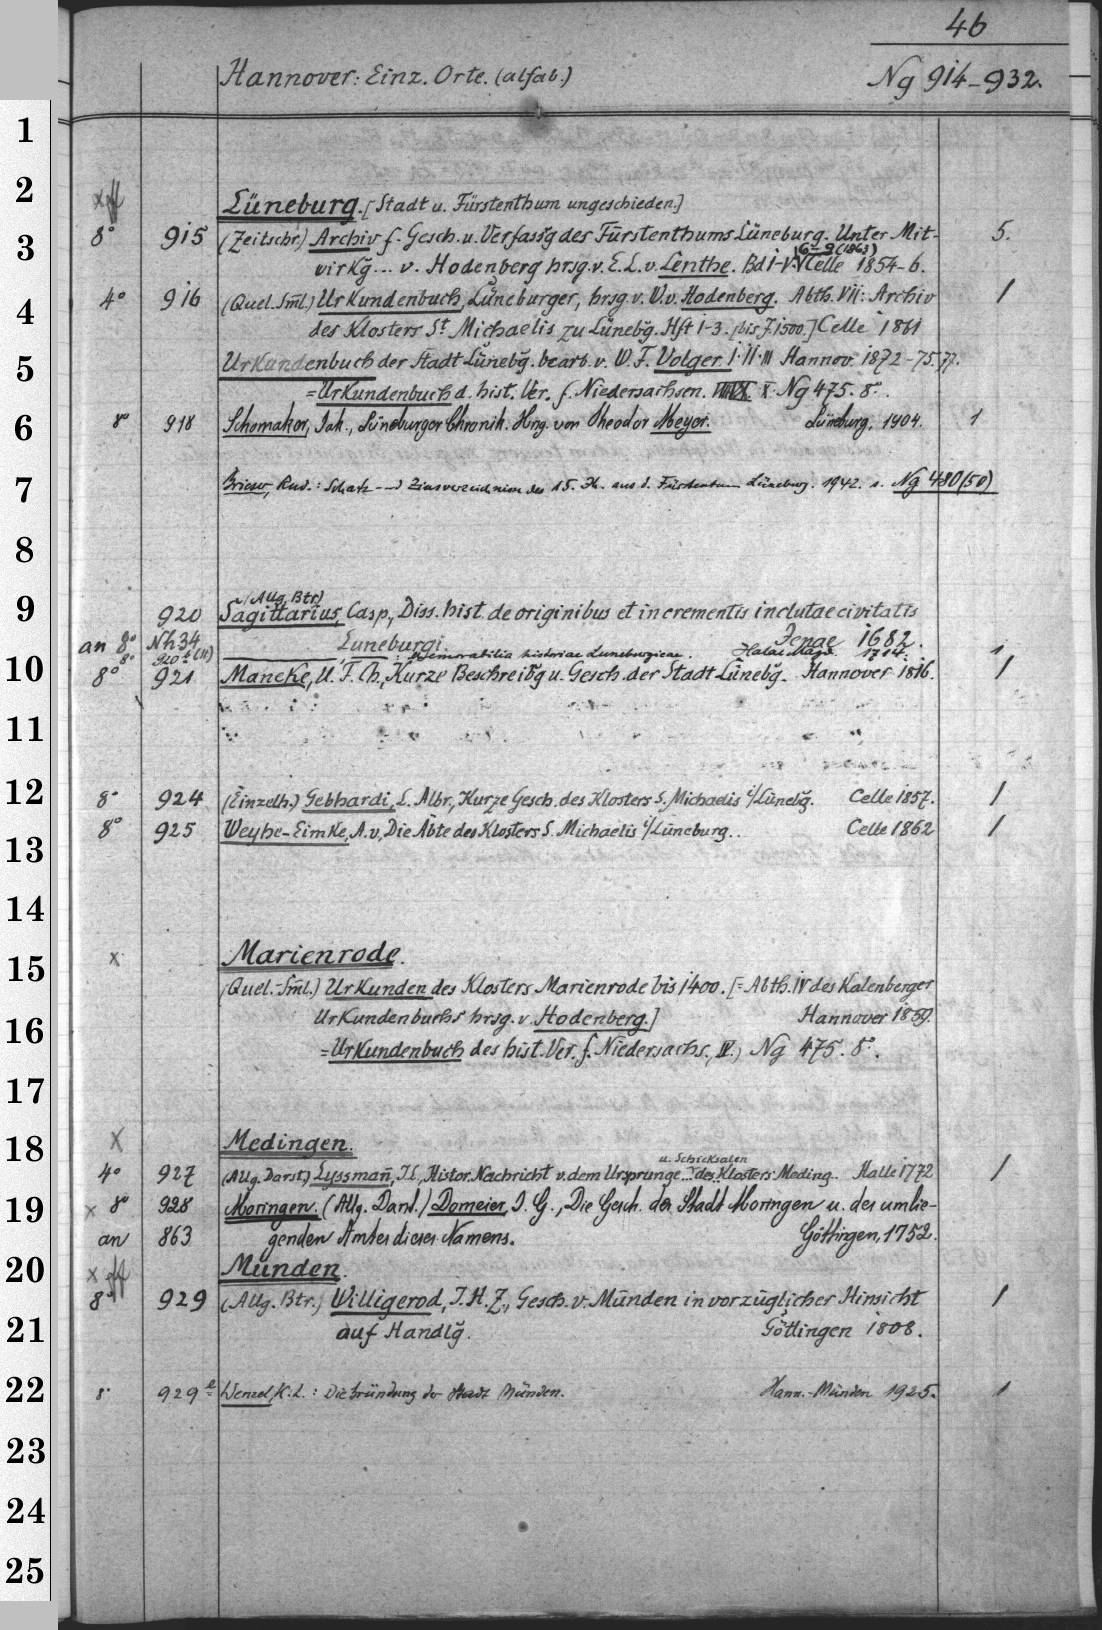 46
Hannover: Einz. Orte. (alfab.) Ng 914-932.
1
2
xff Lüneburg. [Stadt u. Fürstenthum ungeschieden.]
3
8° 915 (Zeitschr.) Archiv f. Gesch. u. Verfassg des Fürstenthums Lüneburg. Unter Mit- 5.
6-9 (1863)
wirkg... v. Hodenberg hrsg. v. E. L. v. Lenthe. Bd I-V. Celle 1854-6.
4
4° 916 (Quel. Sml.) Urkundenbuch, Lüneburger, hrsg. v. W. v. Hodenberg. Abth. VII: Archiv 1
des Klosters St Michaelis zu Lünebg. Hft 1-3. [bis J. 1500.] Celle 1861
5
Urkundenbuch der Stadt Lünebg. bearb. v. W. F. Volger. I. II. III Hannov. 1872-75.77.
= Urkundenbuch d. hist. Ver. f. Niedersachsen. VIII. IX. X. Ng 475. 8°.
6
8° 918 Schomaker, Jak., Lüneburger Chronik. Hrsg. von Theodor Meyer. Lüneburg, 1904. 1
7
Grieser, Rud.: Schatz- und Zinsverzeichnisse des 15. Jh. aus d. Fürstentum Lüneburg. 1942. s. Ng 480 (50)
8
9
(Allg. Btr.)
920 Sagittarius, Casp., Diss. hist. de originibus et incrementis inclutae civitatis
an 8° Nh 34 Luneburgi. Jenae 1682.
8° 920 (11) : Memorabilia historiae Luneburgicae. Halae Magd. 1714. 1
10
8° 921 Manecke, U. F. Ch., Kurze Beschreibg u. Gesch. der Stadt Lünebg. Hannover 1816. 1
11
12
8° 924 (Einzelh.) Gebhardi, L. Albr., Kurze Gesch. des Klosters S. Michaelis i/Lünebg. Celle 1857. 1
8° 925 Weyhe-Eimke, A. v., Die Äbte des Klosters S. Michaelis i/Lüneburg. Celle 1862 1
13
14
15
x Marienrode.
(Quel.-Sml.) Urkunden des Klosters Marienrode bis 1400. [= Abth. IV des Kalenberger
16
Urkundenbuchs hrsg. v. Hodenberg.] Hannover 1859.
= Urkundenbuch des hist. Ver. f. Niedersachs., IV.) Ng 475. 8°.
17
18
x Medingen.
u. Schicksalen
4° 927 (Allg. Darst.) Lyssmann, J. L., Histor. Nachricht v. dem Ursprunge des Klosters Meding. Halle 1772 1
19
x 8° 928 Moringen. (Allg. Darst.) Domeier, J. G., Die Gesch. der Stadt Moringen u. des umlie-
an 863 genden Amtes dieses Namens. Göttingen, 1752.
20
xff Münden.
8° 929 (Allg. Btr.) Willigerod, J. H. Z., Gesch. v. Münden in vorzüglicher Hinsicht 1
21
auf Handlg. Göttingen 1808.
22
8° 929 e Wenzel, H. L.: Die Gründung der Stadt Münden. Hann.-Münden 1925. 1
23
24
25